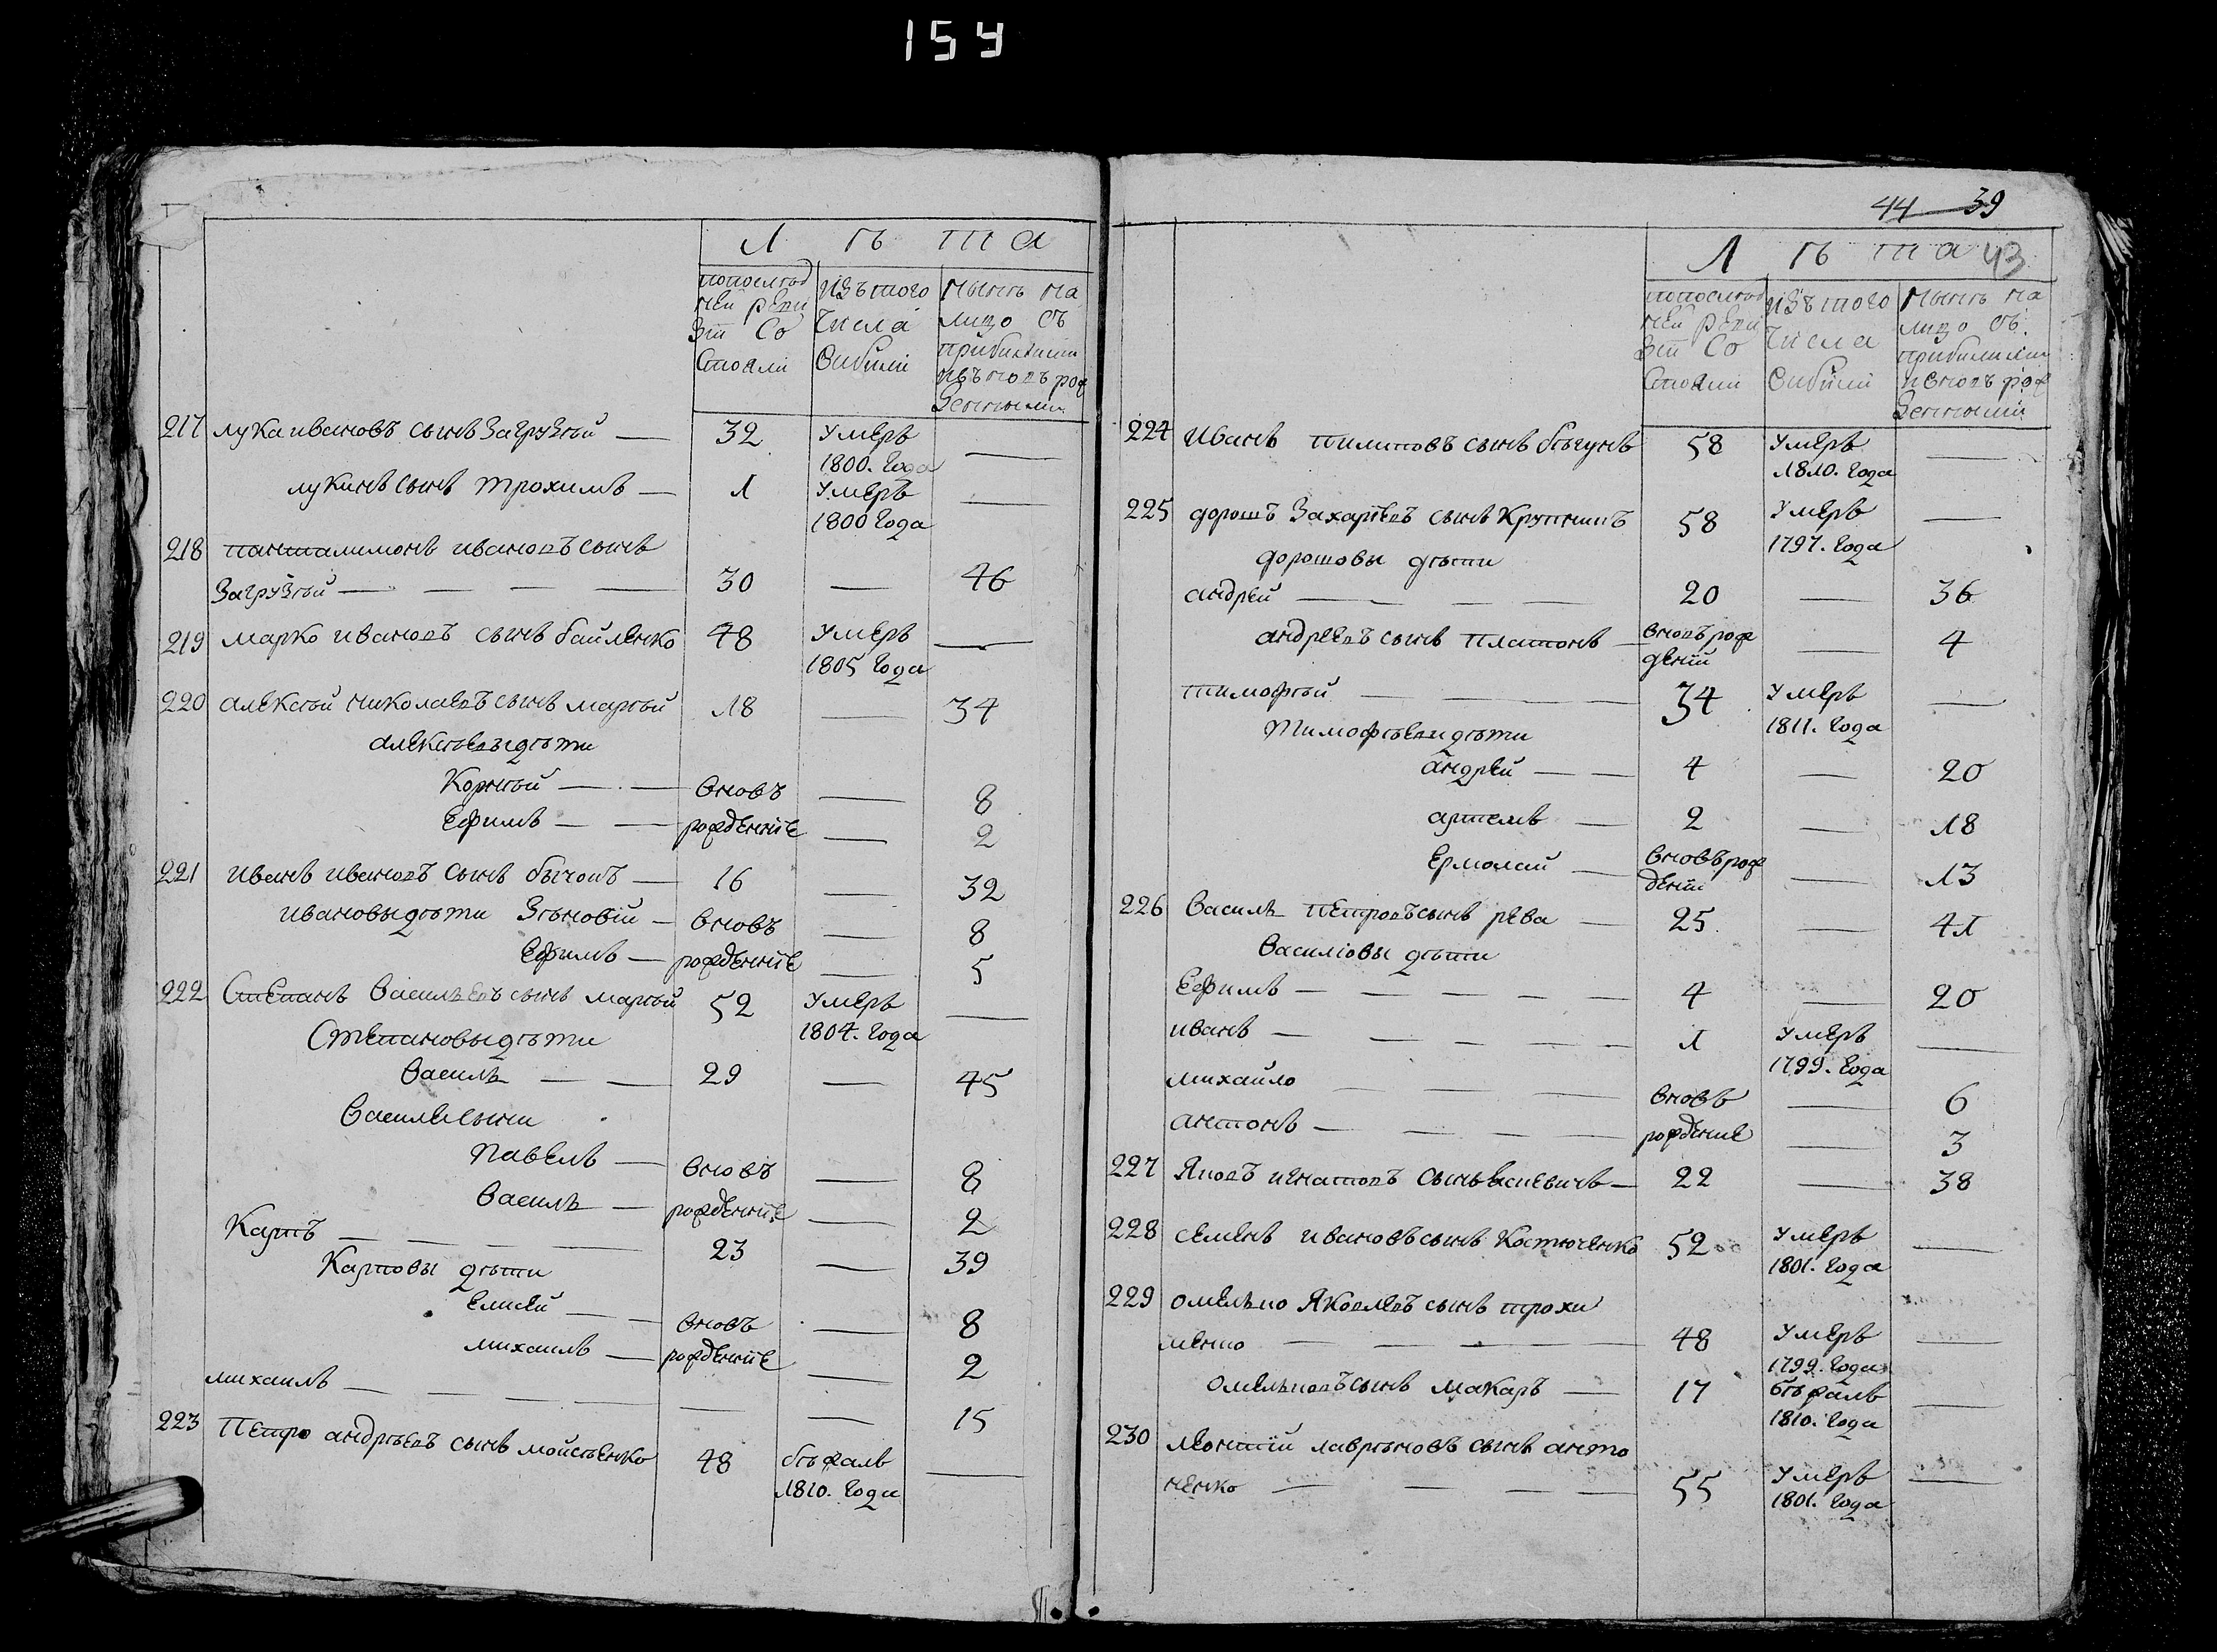 154
Л ѣ т а
попослѣд изътого нынѣ на
ней реви числа лицо съ
зіи со выбыли прибылыми
стояли ивъновърож
денными
217 лука ивановъ сынъ Загрузный — 32 умеръ —
1800. года
лукинъ сынъ трохимъ — 1 умеръ —
1800 года
218 панталимонъ ивановъ сынъ
Загрузный — — — — 30 — 46
219 марко ивановъ сынъ байленко 48 умеръ —
1805 года
220 алексѣй николаевъ сынъ марный 18 — 34
алексѣевы дѣти
Корнѣй — — вновь — 8
Ефимъ — — рожденніе — 2
221 иванъ ивановъ сынъ бычокъ — 16 — 32
ивановы дѣти Зѣновій — вновъ — 8
Ефимъ — рожденніе — 5
222 Степанъ Васильевъ сынъ марный 52 умеръ —
1804. года
Степановы дѣти
Василь — — 29 — 45
Василевы сыны
Павелъ — вновъ — 8
Василь — рожденніе — 2
Карпъ — — — — 23 — 39
Карповы дѣти
Елисей — — вновъ — 8
михаилъ — рожденніе — 2
михаилъ — — — — — — 15
223 Петро андрѣевъ сынъ мойсѣенко 48 бѣжалъ —
1810. года
44 39
Л ѣ т а 43
попослѣд изътого нынѣ на
ней реви числа лицо съ
зіи со выбыли прибылыми
стояли ивновъ рож
денными
224 иванъ пилиповъ сынъ бѣгунъ 58 умеръ —
1810. года
225 дорошъ Захаріевъ сынъ Крупникъ 58 умеръ —
1797. года
дорошовы дѣти
андрей — — — — 20 — 36
андреевъ сынъ платонъ — вновъ рож — 4
дений
тимофѣй — — — — 34 умеръ —
1811. года
Тимофѣевы дѣти
андрей — — 4 — 20
артемъ — 2 — 18
Ермолай — вновъ рож — 13
дений
226 Василь Петровъ сынъ рева — 25 — 41
Василіовы дѣти
Ефимъ — — — — — 4 — 20
иванъ — — — — — 1 умеръ —
1799. года
михайло — — — вновъ — 6
антонъ — — — — рожденніе — 3
227 Яковъ игнатовъ сынъ — 22 — 38
228 семенъ ивановъ сынъ Костюченко 52 умеръ —
1801. года
229 омелько Яковлевъ сынъ трохи
менко — — — — 48 умеръ —
1799. года
омельковъ сынъ макаръ — 17 бѣжалъ —
1810. года
230 леонтій лаврѣновъ сынъ анто
ненко — — — — 55 умеръ —
1801. года